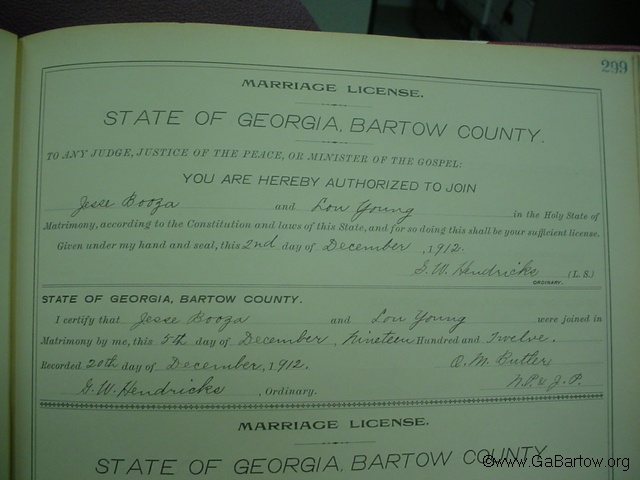 299
MARRIAGE LICENSE.
STATE OF GEORGIA, BARTOW COUNTY.
TO ANY JUDGE, JUSTICE OF THE PEACE, OR MINISTER OF THE GOSPEL:
YOU ARE HEREBY AUTHORIZED TO JOIN
Jesse Booza and Lou Young in the Holy State of
Matrimony, according to the Constitution and laws of this State, and for so doing this shall be your sufficient license.
Given under my hand and seal, this 2nd day of December, 1912.
G. W. Hendricks (L. S.)
ORDINARY.
STATE OF GEORGIA, BARTOW COUNTY.
I certify that Jesse Booza and Lou Young were joined in
Matrimony by me, this 5th day of December, Nineteen Hundred and Twelve.
Recorded 20th day of December, 1912. O. M. Butler
G. W. Hendricks, Ordinary. N.P. & J.P.
MARRIAGE LICENSE.
STATE OF GEORGIA, BARTOW COUNTY
©www.GaBartow.org